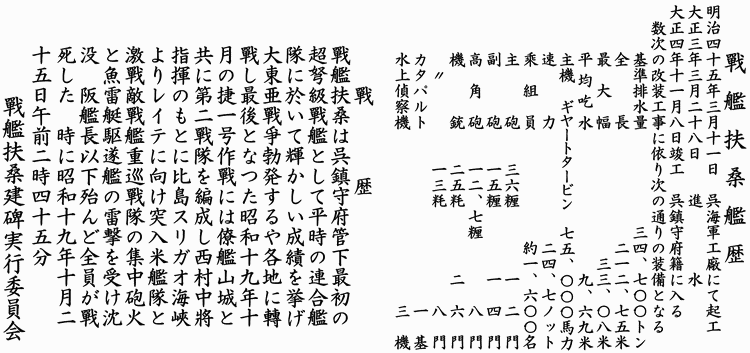 戰艦扶桑艦歴
明治四十五年三月十一日 呉海軍工廠にて起工
大正三年三月二十八日 進水
大正四年十一月八日竣工 呉鎮守府籍に入る
数次の改装工事に依り次の通りの装備となる
基準排水量 三四、七〇〇トン
全長 二一二、七五米
最大幅 三三、〇八米
平均吃水 九、六九米
主機 ギヤートタービン 七五、〇〇〇馬力
速力 二四、七ノット
乗組員 約一、六〇〇名
主砲 三六糎 一二門
副砲 一五糎 一四門
高角砲 一二、七糎 八門
機銃 二五耗 二六門
〃 一三耗 八門
カタパルト 一基
水上偵察機 三機
戰歴
戰艦扶桑は呉鎮守府管下最初の
超弩級戰艦として平時の連合艦
隊に於いて輝かしい成績を挙げ
大東亜戰争勃発するや各地に轉
戰し最後となつた昭和十九年十
月の捷一号作戰には僚艦山城と
共に第二戰隊を編成し西村中將
指揮のもとに比島スリガオ海峡
よりレイテに向け突入米艦隊と
激戰敵戰艦重巡戰隊の集中砲火
と魚雷艇駆逐艦の雷撃を受け沈
没 阪艦長以下殆んど全員が戰
死した 時に昭和十九年十月二
十五日午前二時四十五分
戰艦扶桑建碑実行委員会